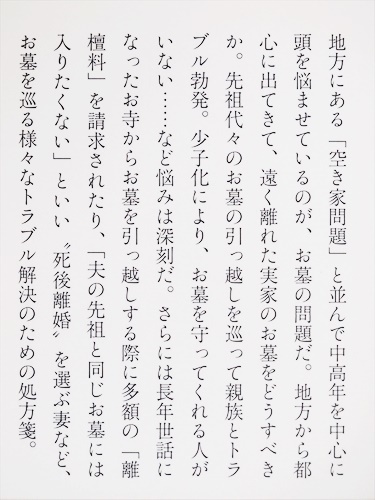 地方にある「空き家問題」と並んで中高年を中心に
頭を悩ませているのが、お墓の問題だ。地方から都
心に出てきて、遠く離れた実家のお墓をどうすべき
か。先祖代々のお墓の引っ越しを巡って親族とトラ
ブル勃発。少子化により、お墓を守ってくれる人が
いない……など悩みは深刻だ。さらには長年世話に
なったお寺からお墓を引っ越しする際に多額の「離
檀料」を請求されたり、「夫の先祖と同じお墓には
入りたくない」といい〝死後離婚〟を選ぶ妻など、
お墓を巡る様々なトラブル解決のための処方箋。